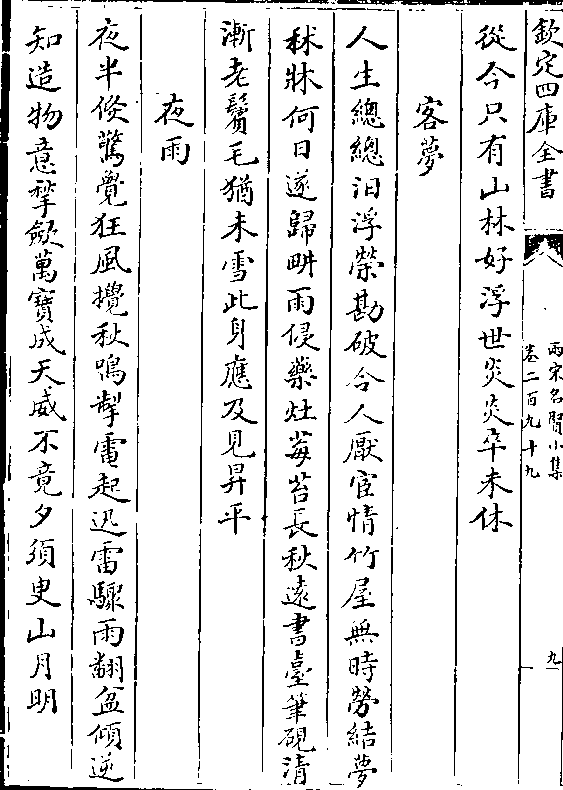 欽定四庫全書
兩宋名賢小集
卷二百九十九
九
從今只有山林好浮世炎炎卒未休
客夢
人生總總汨浮榮勘破令人厭宦情竹屋無時勞結夢
秫牀何日遂歸畊雨侵藥灶莓苔長秋遠書臺筆硯清
漸老鬢毛猶未雪此身應及見昇平
夜雨
夜半倐驚覺狂風攪秋鳴掣電起迅雷驟雨翻盆傾逆
知造物意揫歛萬寶成天威不竟夕須臾山月明